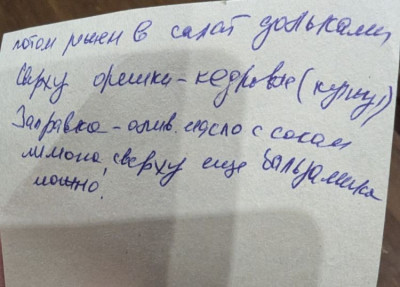 потом рвем в салат дольками
Сверху орешки - кедровые (кунжут)
Заправка - олив. масло с соком
лимона, сверху еще бальзамика
можно!